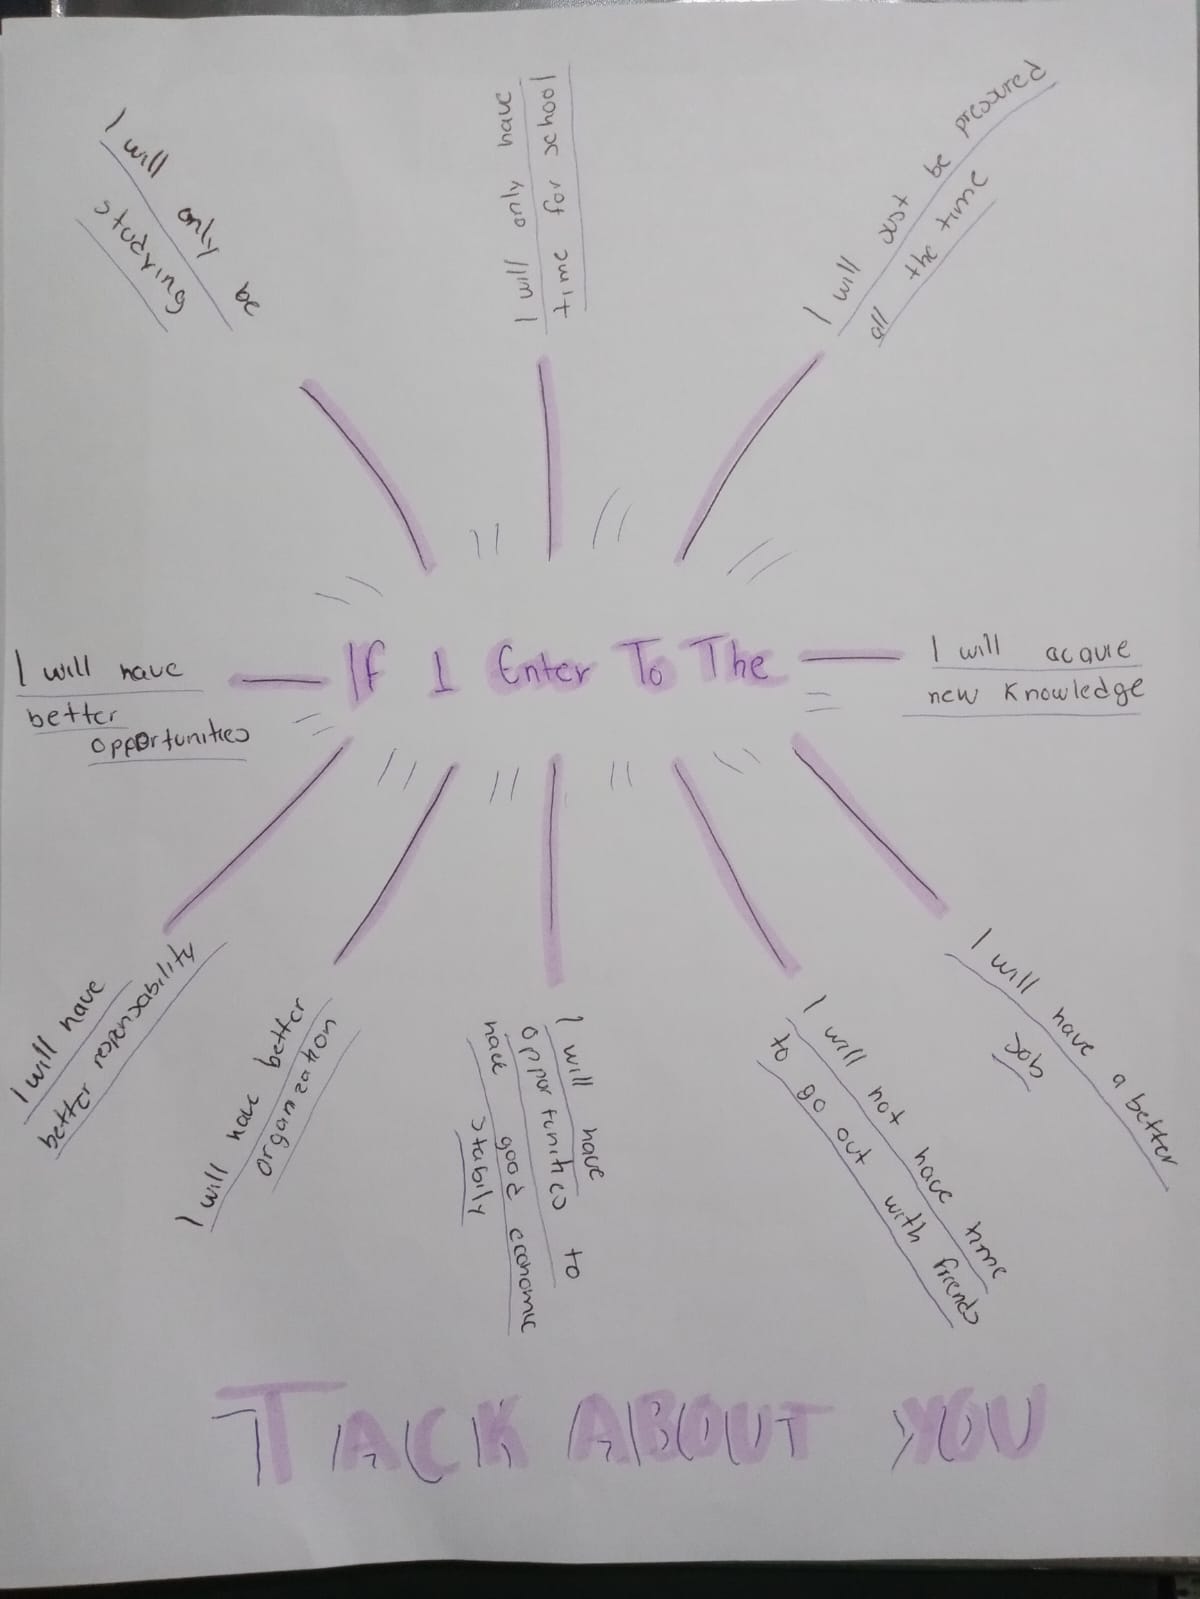 I will only be
studying
I will only have
time for school
I will just be pressured
all the time
I will have
better
opportunities
If I Enter To The
I will acquire
new knowledge
I will have
better responsability
I will have better
organization
I will have
opportunities to
have good economic
stabily
I will not have time
to go out with friends
I will have a better
job
TACK ABOUT YOU